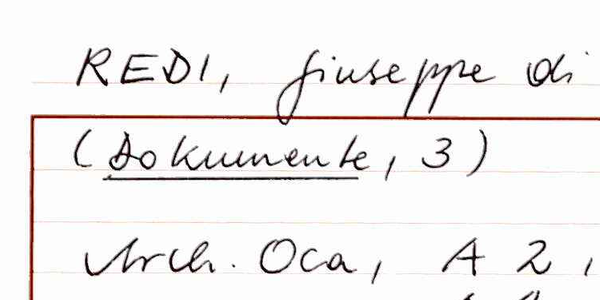 REDI, Giuseppe di
(Dokumente, 3)
Arch. Oca, A 2,